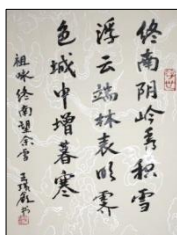 终南阴岭秀积雪
浮云端林表明霁
色城中增暮寒
祖咏终南望余雪